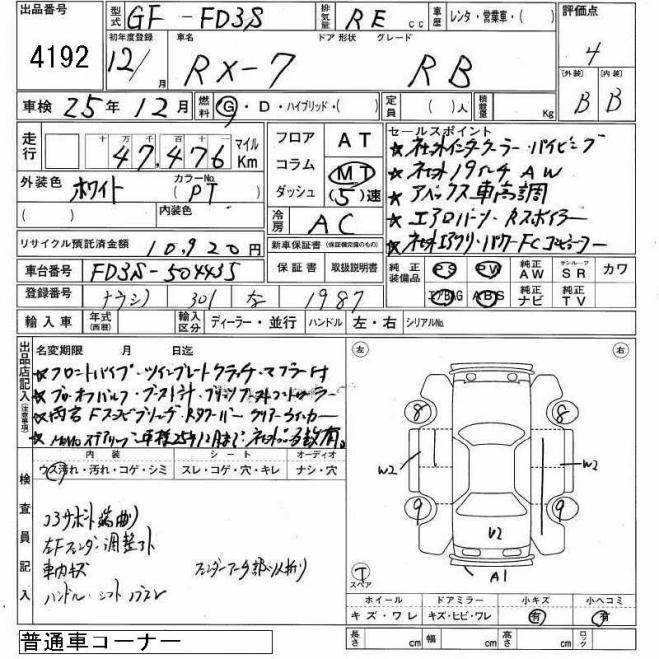 出品番号 4192
型式 GF-FD3S 排気量 RE cc 車歴 レンタ・営業車・( ) 評価点 4
初年度登録 12/ 月 車名 RX-7 ドア 形状 グレード RB [外装] B [内装] B
車検 25年12月 燃料 G・D・ハイブリッド・( ) 定員 ( )人 積載量 Kg
走行 十 万 千 百 十 一 47,476 マイル Km
フロア コラム ダッシュ AT MT (5)速
セールスポイント
★社外インタークーラー・パイピング
★社外19インチAW
★アペックス車高調
★エアロバンパー・Rスポイラー
★社外エアクリ・パワーFC
外装色 ホワイト カラーNo. (PT)
( ) 内装色
冷房 AC
リサイクル預託済金額 10,920円
新車保証書 (保証継承可能のもの)
保証書 取扱説明書
車台番号 FD3S-504435
純正装備品 PS PW 純正AW サンルーフ SR カワ
エアBAG ABS 純正ナビ 純正TV
登録番号 301 な 1987
輸入車 年式(西暦) 輸入区分 ディーラー・並行 ハンドル 左・右 シリアルNo.
出品店記入(注意事項) 名変期限 月 日迄
★フロントパイプ・ツインプレートクラッチ・マフラー付
★ブローオフバルブ・ブースト計
車検25年12月まで 社外品多数有。
内装 シート オーディオ
ウス汚れ・汚れ・コゲ・シミ スレ・コゲ・穴・キレ ナシ・穴
検査員記入
コアサポート端曲り
左Fフェンダー調整ズレ
車内キズ
ハンドル・シフト
左 右
8 8
W2 W2
9 9
U2
T スペア A1
ホイール ドアミラー 小キズ 小ヘコミ
キズ・ワレ キズ・ヒビ・ワレ 有 有
普通車コーナー
長さ cm 幅 cm 高さ cm ロック